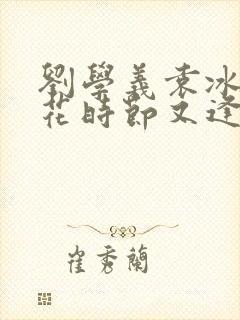 劉學義袁冰妍落
花時節又逢君
崔秀蘭